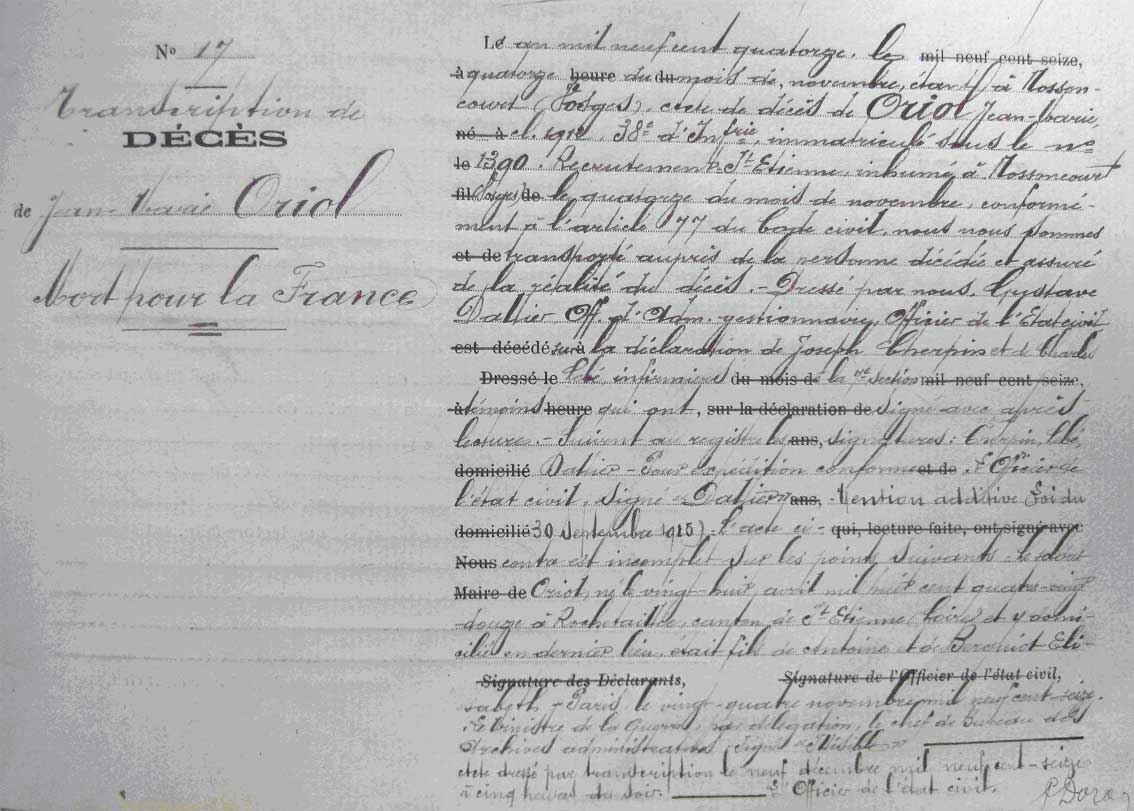 N° 17
Transcription de
DÉCÈS
de Jean Marie Oriol
Mort pour la France
Le an mil neuf cent quatorze, le mil neuf cent seize,
à quatorze heure du du mois de novembre, étant à Nosson-
court (Vosges), acte de décès de Oriol Jean-Marie,
né à cl. 1912, 38e d'Infrie, immatriculé sous le no
le 1390. Recrutement St Etienne, inhumé à Nossoncourt
fils (Vosges) de le quatorze du mois de novembre, conformé-
ment à l'article 77 du Code civil, nous nous sommes
et de transporté auprès de la personne décédée et assuré
de la réalité du décès. - Dressé par nous, Gustave
Dallier Off. d'Adm. gestionnaire, Officier de l'Etat civil
est décédé sur à la déclaration de Joseph Cherpin et de Charles
Dressé le infirmiers du mois de la section mil neuf cent seize,
à témoins heure qui ont, sur la déclaration de signé avec après
lecture. - Suivent au registre les ans, signatures : Cherpin,
domicilié Dallier - Pour expédition conforme et de L'Officier de
l'état civil, signé "Dallier" ans, - Mention additive (Loi du
domicilié 30 Septembre 1915). L'acte ci- qui, lecture faite, ont signé avec
Nous contre est incomplet sur les points suivants - le soldat
Maire de Oriol, né le vingt-huit avril mil huit cent quatre-vingt
douze à Rochetaillée, canton de St Etienne (Loire) et y domi-
cilié en dernier lieu, était fils de Antoine et de Eli-
Signature des Déclarants, Signature de l'Officier de l'état civil,
sabeth - Paris, le vingt-quatre novembre mil neuf cent-seize.
Le Ministre de la Guerre, par délégation, le chef de Bureau des
Archives administratives, Signé "Illisible"
acte dressé par transcription le neuf décembre mil neuf cent-seize
à cinq heures du soir. L'Officier de l'état civil.